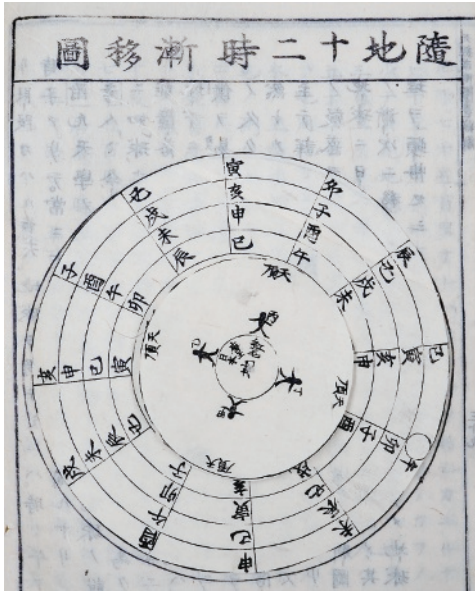 隨地十二時漸移圖
寅亥申巳
卯子酉午
辰丑戌未
巳寅亥申
午卯子酉
未辰丑戌
申巳寅亥
酉午卯子
戌未辰丑
亥申巳寅
子酉午卯
丑戌未辰
天頂
天頂
天頂
天頂